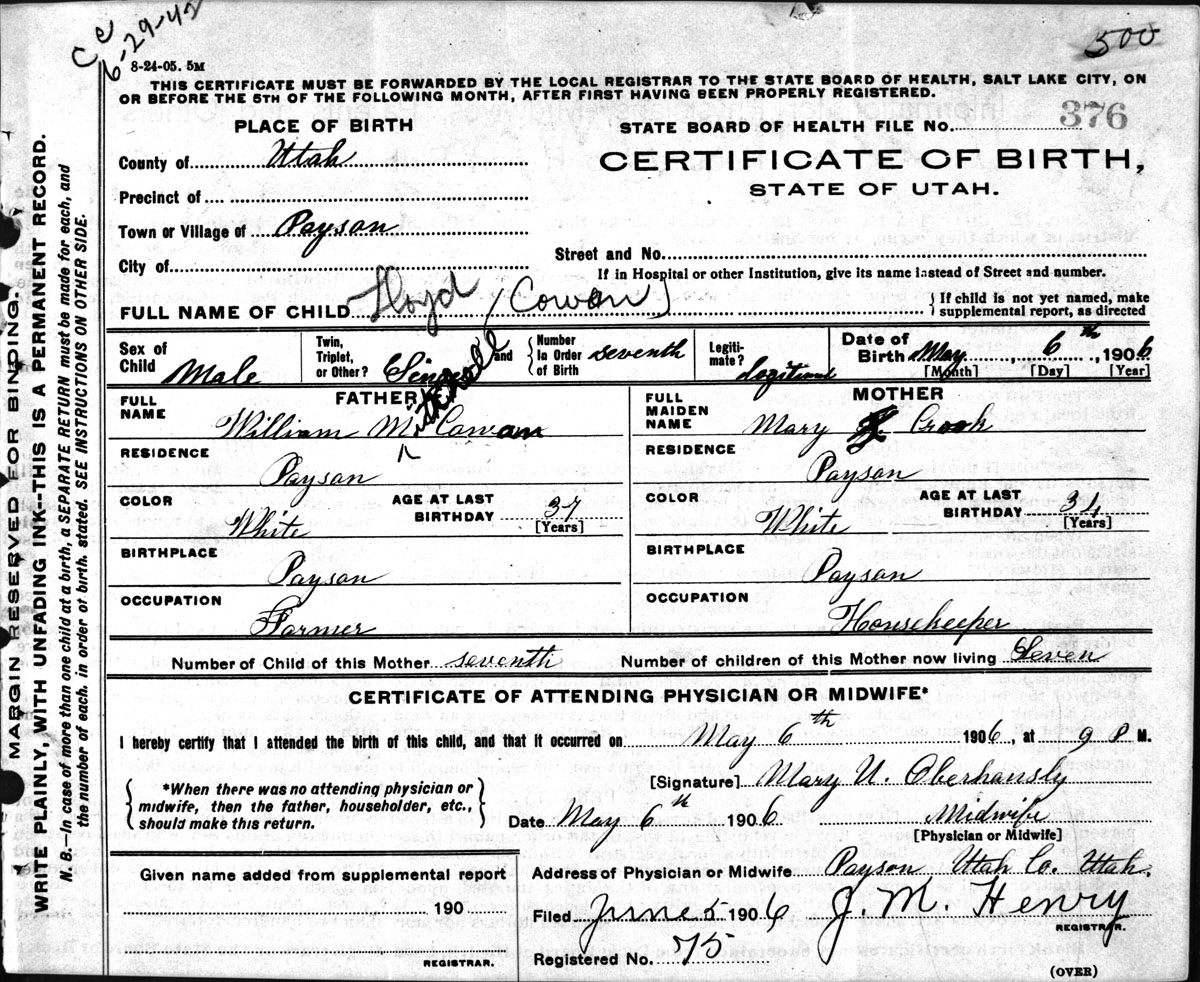 Ce
6-29-42
500
8-24-05. 5M
THIS CERTIFICATE MUST BE FORWARDED BY THE LOCAL REGISTRAR TO THE STATE BOARD OF HEALTH, SALT LAKE CITY, ON
OR BEFORE THE 5TH OF THE FOLLOWING MONTH, AFTER FIRST HAVING BEEN PROPERLY REGISTERED.
PLACE OF BIRTH
STATE BOARD OF HEALTH FILE No. 376
County of Utah
CERTIFICATE OF BIRTH,
STATE OF UTAH.
Precinct of
Town or Village of Payson
City of
Street and No.
If in Hospital or other Institution, give its name instead of Street and number.
FULL NAME OF CHILD Lloyd (Cowan)
{ If child is not yet named, make
supplemental report, as directed
Sex of Child Male
Twin, Triplet, or Other? Single and { Number In Order of Birth seventh
Legiti-mate?
Date of Birth May, 6th, 1906
[Month] [Day] [Year]
FATHER
FULL NAME William M. Cowan
RESIDENCE
Payson
COLOR White
AGE AT LAST BIRTHDAY 37
[Years]
BIRTHPLACE
Payson
OCCUPATION
Farmer
MOTHER
FULL MAIDEN NAME Mary Crook
RESIDENCE
Payson
COLOR White
AGE AT LAST BIRTHDAY 34
[Years]
BIRTHPLACE
Payson
OCCUPATION
Housekeeper
Number of Child of this Mother seventh Number of children of this Mother now living Seven
CERTIFICATE OF ATTENDING PHYSICIAN OR MIDWIFE*
I hereby certify that I attended the birth of this child, and that it occurred on May 6th 1906, at 9 P M.
{ *When there was no attending physician or
midwife, then the father, householder, etc.,
should make this return. }
[Signature] Mary U. Oberhansly
Date May 6th 1906 Midwife
[Physician or Midwife]
Given name added from supplemental report
190
REGISTRAR.
Address of Physician or Midwife Payson Utah Co. Utah.
Filed June 5 1906 J. M. Henry
REGISTRAR.
Registered No. 75
(OVER)
MARGIN RESERVED FOR BINDING.
WRITE PLAINLY, WITH UNFADING INK--THIS IS A PERMANENT RECORD.
N. B.—In case of more than one child at a birth, a SEPARATE RETURN must be made for each, and
the number of each, in order of birth, stated. SEE INSTRUCTIONS ON OTHER SIDE.